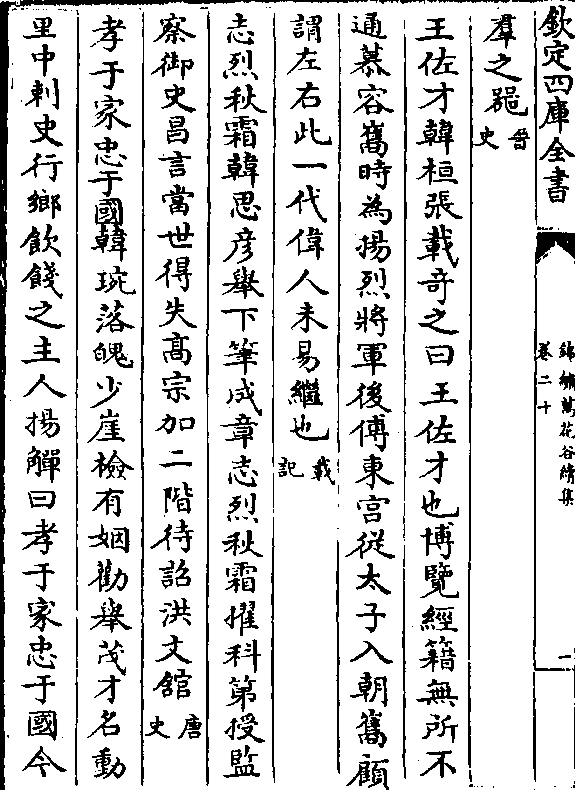 欽定四庫全書
錦繡萬花谷續集
卷二十
一
羣之䶊晉史
王佐才韓桓張載竒之曰王佐才也博覽經籍無所不
通慕容雋時為揚烈將軍後傅東宫從太子入朝雋顧
謂左右此一代偉人未易繼也載記
志烈秋霜韓思彦舉下筆成章志烈秋霜擢科第授監
察御史昌言當世得失髙宗加二階待詔洪文舘唐史
孝于家忠于國韓琬落魄少崖檢有姻勸舉茂才名動
里中刺史行鄉飲餞之主人揚觶曰孝于家忠于國今